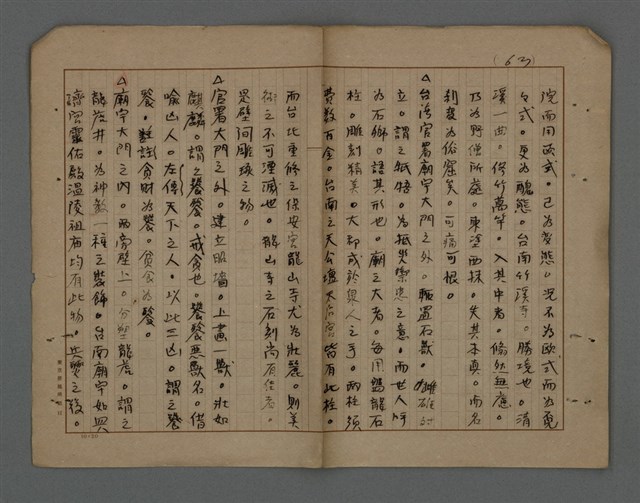 (62)
院而用欧式。已為变態。况不為欧式而為
々式。更為醜態。台南竹溪寺。勝境也。清
溪一曲。修竹萬竿。入其中者。翛然無慮。
乃為野僧所處。東塗西抹。失其本真。而名
刹变為俗窟矣。可痛可恨。
△台湾官署廟宇大門之外。輒置石獸。雌雄対
立。謂之紙牾。為抵災禦患之意。而世人呼
為石獅。語其形也。廟之大者。每用蟠龍石
柱。雕刻精美。大都成於粤人之手。兩柱須
費数百金。台南之天公壇大治宮皆有此柱。
而台北重修之保安宮龍山寺尤為壯麗。則美
術之不可湮滅也。龍山寺之石刻尚有佳者。
是壁间雕琢之物。
△官署大門之外。建立照墻。上画一獸。壯如
麒麟。謂之饕餮。戒貪也。饕餮惡獸名。借
喻凶人。左傳天下之人。以比三凶。謂之饕
餮。註貪財為饕。貪食為餮。
△廟宇大門之内。兩旁壁上。分塑龍虎。謂之
龍虎井。為神教一種之裝飾。台南廟宇如興
濟宮靈佑殿温陵祖廟均有此物。